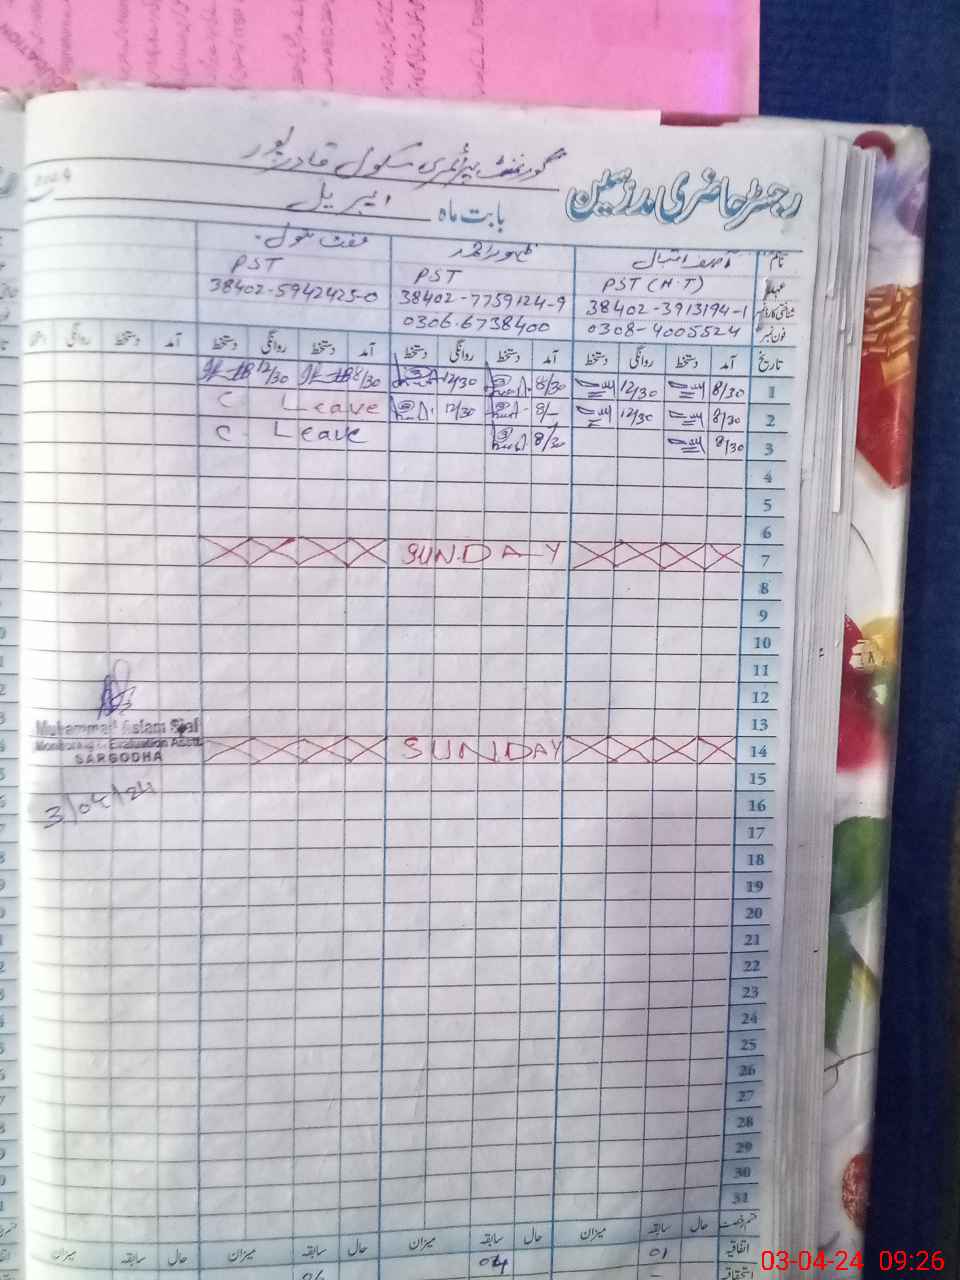 گورنمنٹ پرائمری سکول قادر پور
رجسٹر حاضری مدرسین
بابت ماہ اپریل
نام
PST PST PST (H.T)
38402-5942425-0 38402-7759124-9 38402-3913194-1 شناختی کارڈ نمبر
0306-6738400 0308-4005524 فون نمبر
تاریخ آمد دستخط روانگی دستخط آمد دستخط روانگی دستخط آمد دستخط روانگی دستخط آمد دستخط روانگی
1 8/30 12/30 8/30 12/30 8/30 12/30
2 8/30 12/30 8/- 12/30 C Leave
3 8/30 8/30 C. Leave
4
5
6
7 SUNDAY
8
9
10
11
12
13
14 SUNDAY
15
16
17
18
19
20
21
22
23
24
25
26
27
28
29
30
31
Muhammad Aslam Sial
Monitoring & Evaluation Asstt.
SARGODHA
3/04/24
حال سابقہ میزان حال سابقہ میزان حال سابقہ میزان
اتفاقیہ 01 04
03-04-24 09:26